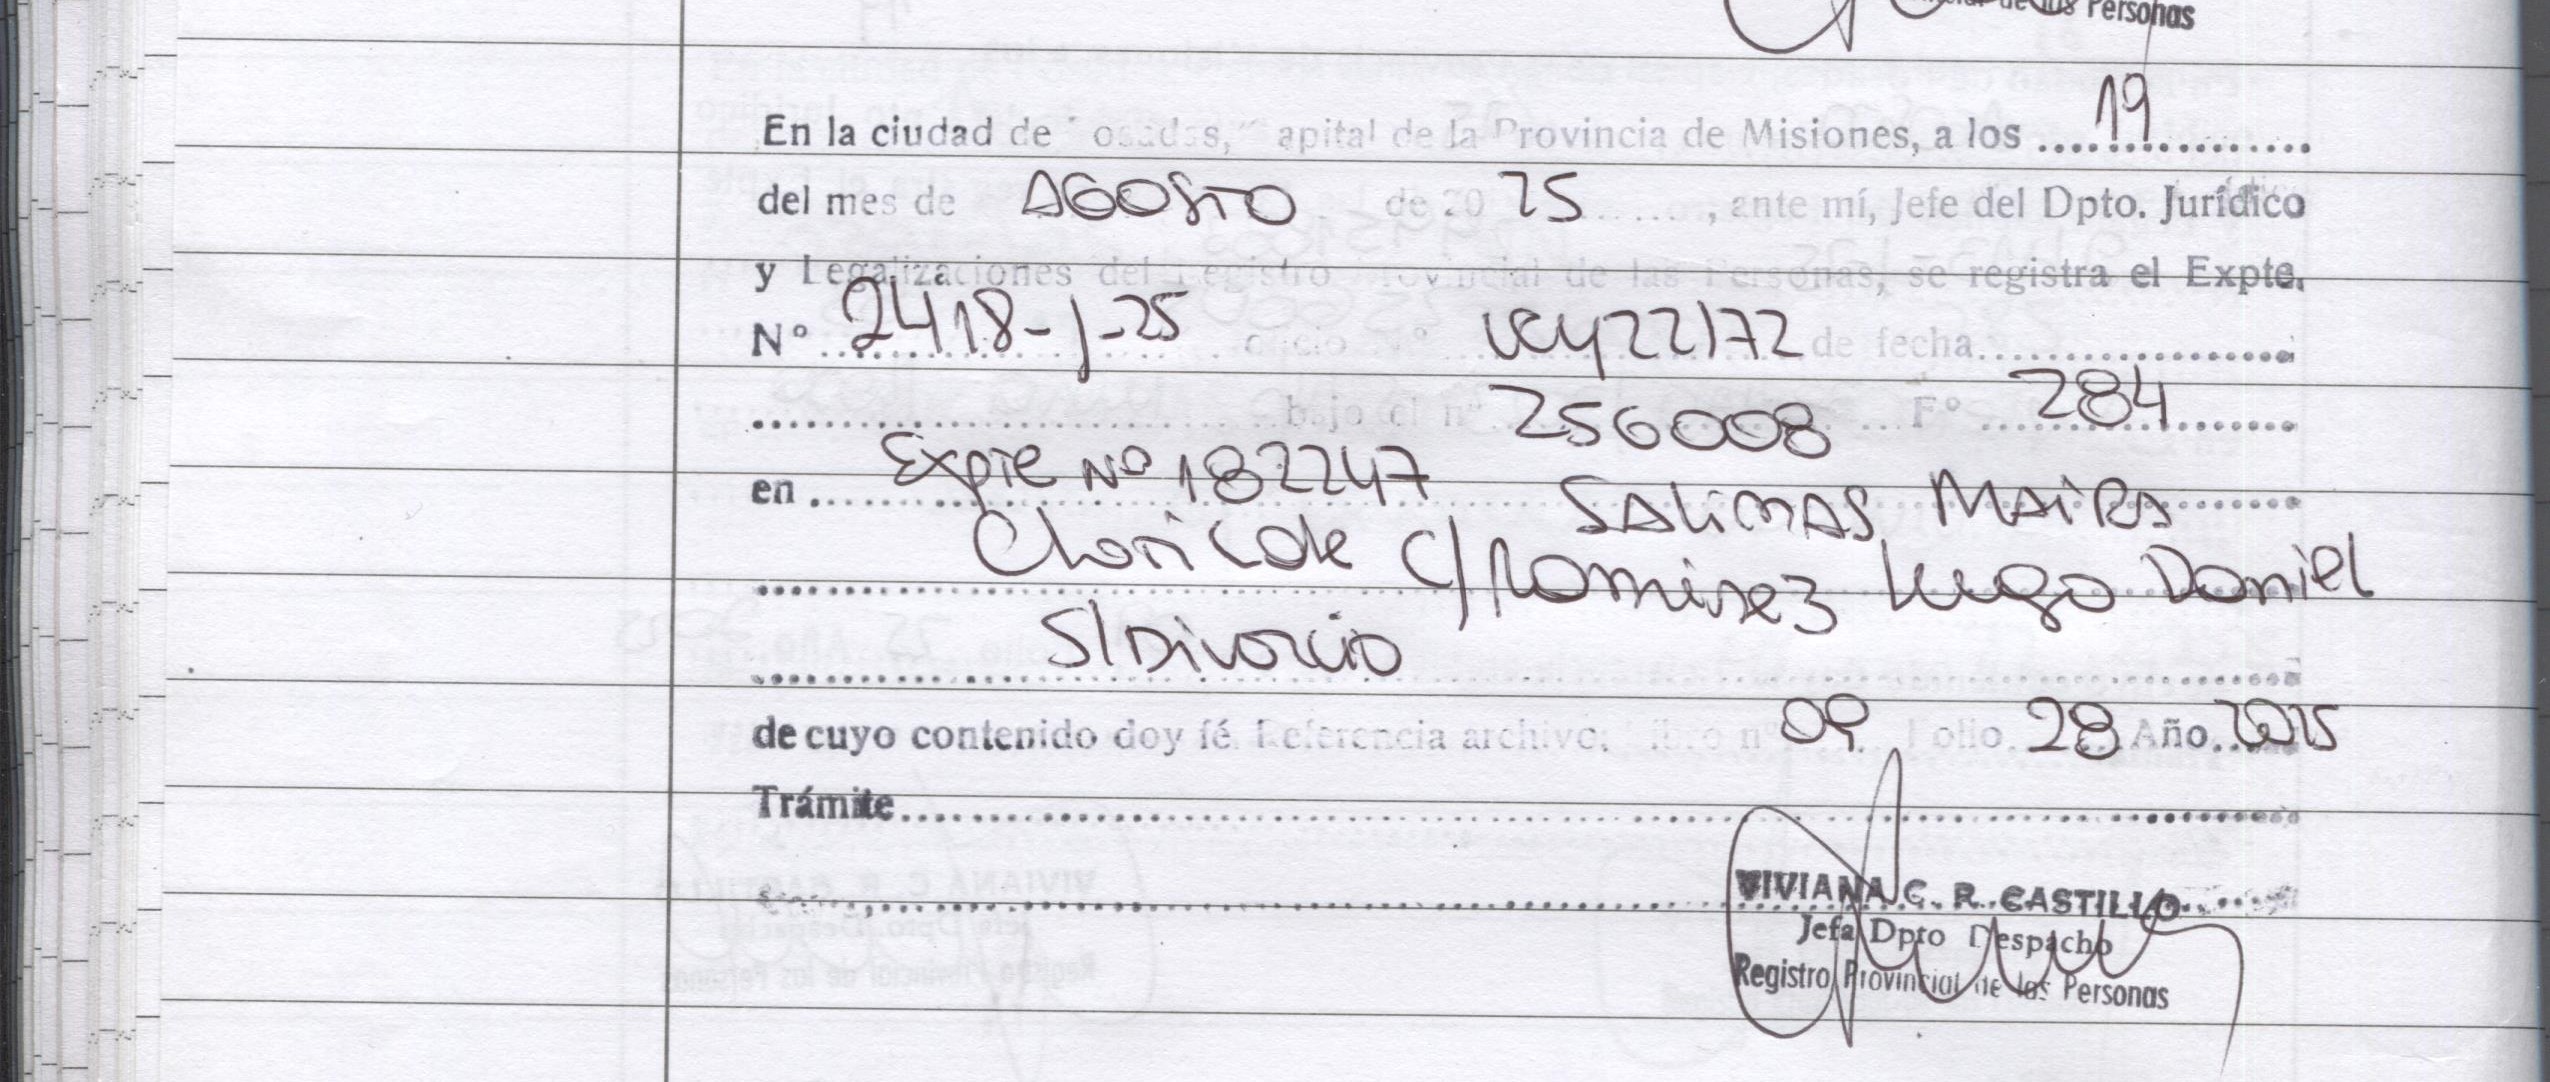 de las Personas
En la ciudad de Posadas, Capital de la Provincia de Misiones, a los 19
del mes de AGOSTO de 20 25, ante mí, Jefe del Dpto. Jurídico
y Legalizaciones del Registro Provincial de las Personas, se registra el Expte.
Nº 2418-J-25 oficio Nº 22172 de fecha
bajo el nº 256008 Fº 284
en Expte Nº 182247 SALINAS MAIRA
C/ Ramirez Hugo Daniel
S/Divorcio
de cuyo contenido doy fé. Referencia archivo, libro nº 09 Folio 28 Año 2025
Trámite
VIVIANA C. R. CASTILLO
Jefa Dpto Despacho
Registro Provincial de las Personas